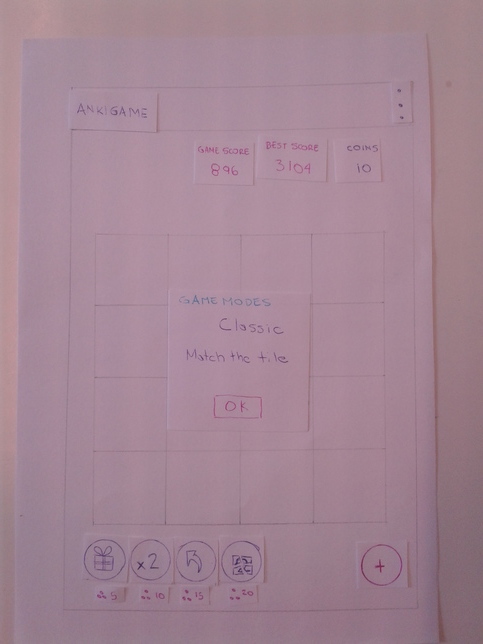 ANKIGAME
GAME SCORE
896
BEST SCORE
3104
COINS
10
GAME MODES
Classic
Match the tile
OK
x2
5
10
15
20
+